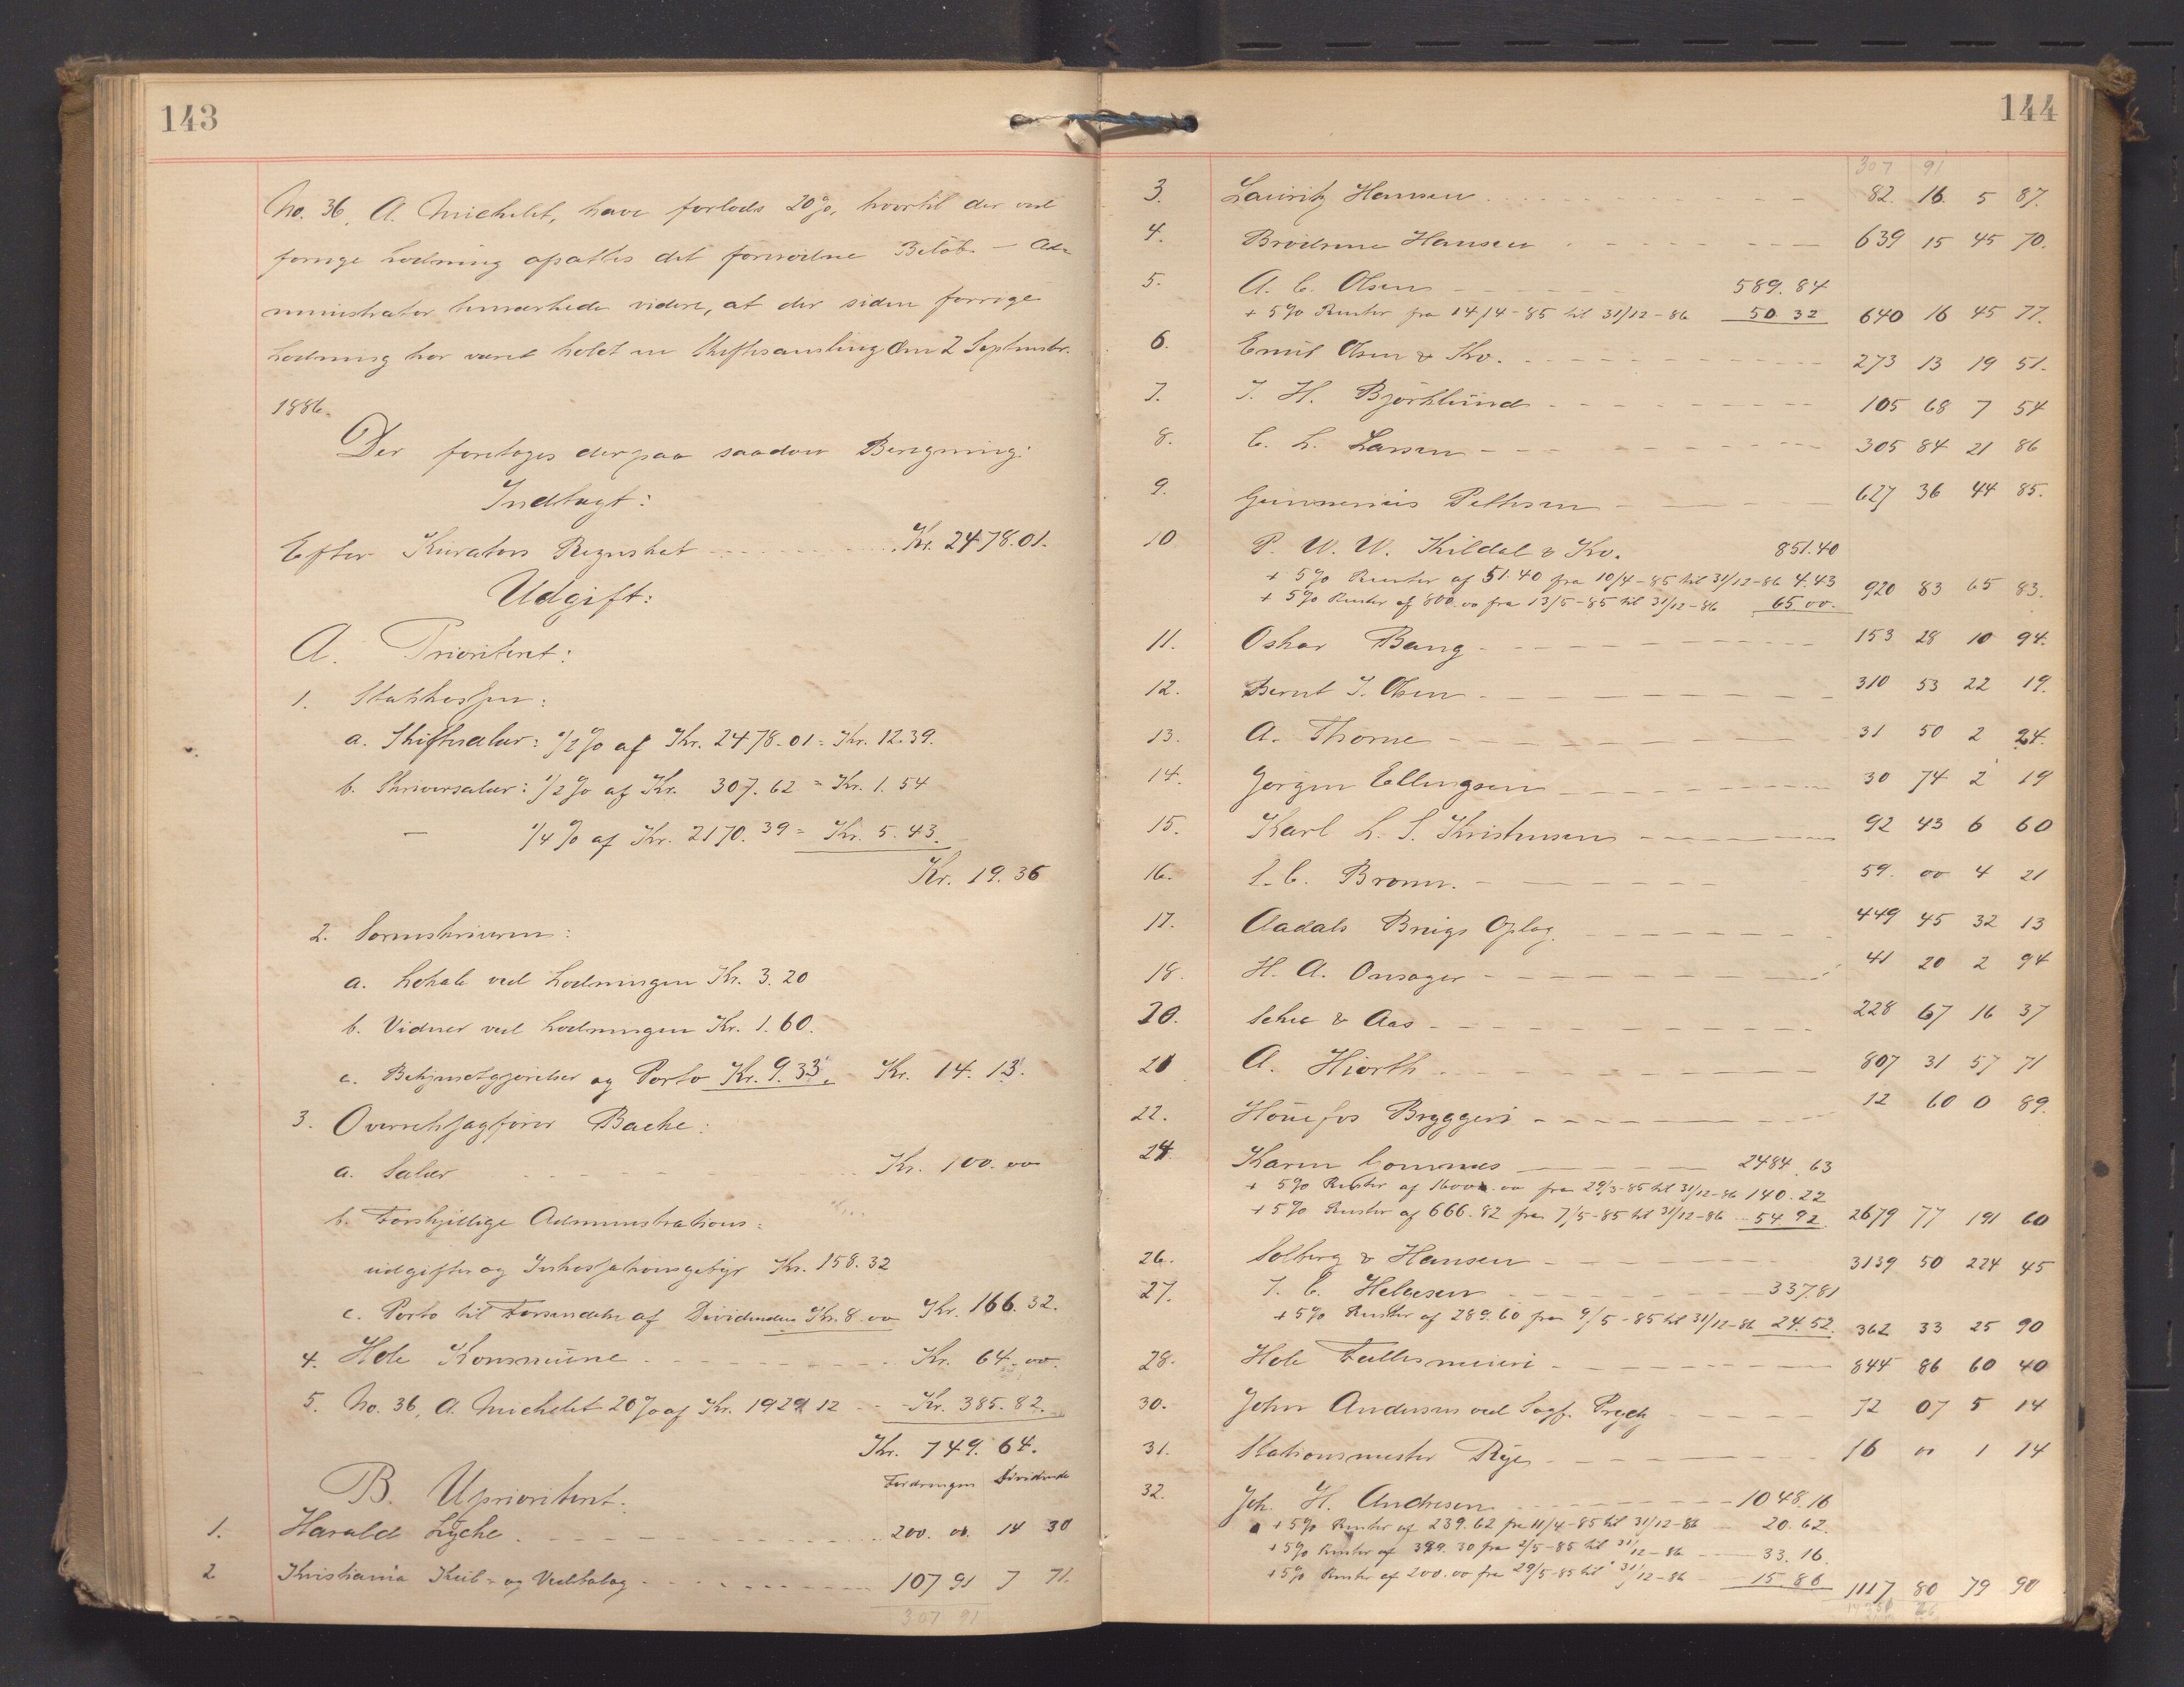 143
No. 36, A. Michelet, have forlods 20%, hvortil der ved
forrige Lodning afsattes det fornødne Beløb. — Ad-
ministrator bemærkede videre, at der siden forrige
Lodning har været holdt en Skiftesamling den 2 Septembr.
1886.
Der foretoges derpaa saadan Beregning:
Indtægt:
Efter Kurators Regnskab Kr. 2478.01.
Udgift:
A. Prioritert:
1. Statskassen:
a. Skiftesalær: 1/2% af Kr. 2478.01 = Kr. 12.39.
b. Skriversalær: 1/2% af Kr. 307.62 = Kr. 1.54
— 1/4% af Kr. 2170.39 = Kr. 5.43.
Kr. 19.36
2. Sorenskriveren:
a. Lokale ved Lodningen Kr. 3.20
b. Vidner ved Lodningen Kr. 1.60.
c. Bekjendtgjørelser og Porto Kr. 9.33. Kr. 14.13.
3. Overretssagfører Bache:
a. Salær Kr. 100.00
b. Forskjellige Administrations-
udgifter og Inkassationsgebyr Kr. 158.32
c. Porto til Forsendelse af Dividenden Kr. 8.00 Kr. 166.32.
4. Hole Kommune Kr. 64.00.
5. No. 36, A. Michelet 20% af Kr. 1929.12 Kr. 385.82.
Kr. 749.64.
B. Uprioritert. Fordringen Dividende
1. Harald Lyche 200.00. 14 30
2 Kristiania Kul- og Vedtalag 107 91 7 71.
307 91
144
307 91
3. Lauritz Hansen 82. 16 5 87.
4. Brødrene Hansen 639 15 45 70.
5. A. C. Olsen 589.84
+ 5% Renter fra 14/4-85 til 31/12-86 50 32 640 16 45 77.
6. Emil Olsen & Ko. 273 13 19 51.
7. J. H. Bjørklund 105 68 7 54
8. C. L. Larsen 305 84 21 86
9. Gunnerius Pettersen 627 36 44 85.
10. P. W. W. Kildal & Ko. 851.40
+ 5% Renter af 51.40 fra 10/4-85 til 31/12-86 4.43
+ 5% Renter af 800.00 fra 13/5-85 til 31/12-86 65.00. 920 83 65 83.
11. Oskar Bang 153 28 10 94.
12. Bernt J. Olsen 310 53 22 19.
13. A. Thorne 31 50 2 24.
14. Jørgen Ellingsen 30 74 2 19
15. Karl L. S. Kristensen 92 43 6 60
16. C. Bronn. 59. 00 4 21
17. Aadals Brugs Oplag. 449 45 32 13
18. H. A. Onsager 41 20 2 94
20. Schee & Aas 228 67 16 37
21 A. Hiorth 807 31 57 71
22. Hønefos Bryggeri 12 60 0 89.
24. Karen Commes 2484.63
+ 5% Renter af 1600.00 fra 29/3-85 til 31/12-86 140.22
+ 5% Renter af 666.82 fra 7/5-85 til 31/12-86 54 92 2679 77 191 60
26. Solberg & Hansen 3139 50 224 45
27. J. C. Helgesen 337.81
+ 5% Renter af 289.60 fra 9/5-85 til 31/12-86 24.52. 362 33 25 90
28. Hole Fællesmeieri 844 86 60 40
30. John Andersen ved Sagf. Prydz 72 07 5 14
31. Stationsmester Rye 16 00 1 14
32. Joh. H. Andresen 1048.16
+ 5% Renter af 239.62 fra 11/4-85 til 31/12-86 20.62.
+ 5% Renter af 399.30 fra 2/5-85 til 31/12-86 33.16.
+ 5% Renter af 200.00 fra 29/5-85 til 31/12-86 15.86 1117 80 79 90